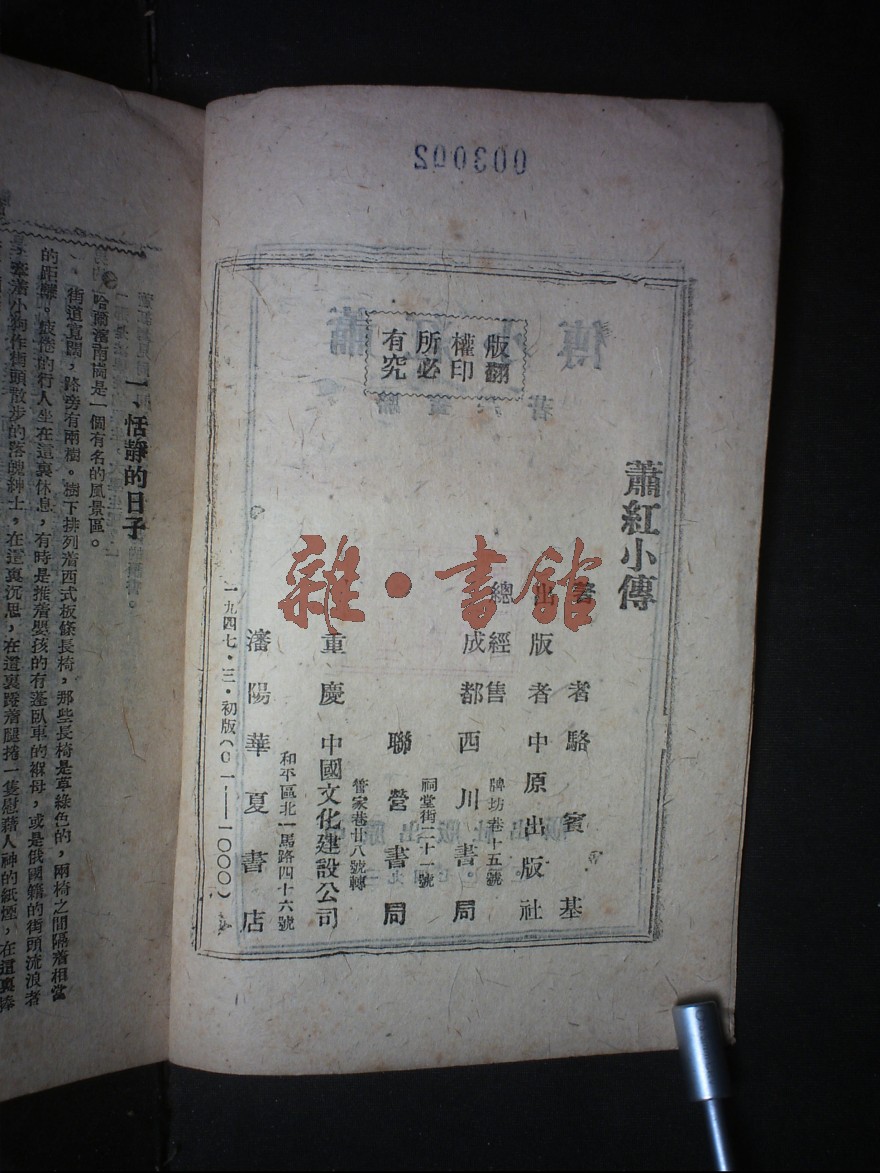 003002
蕭紅小傳
版權所有
翻印必究
著者駱賓基
出版者中原出版社
牌坊巷十五號
總經售
成都西川書局
祠堂街二十一號
聯營書局
管家巷廿八號轉
重慶中國文化建設公司
和平區北一馬路四十六號
瀋陽華夏書店
一九四七・三・初版(〇一——一〇〇〇)
雜・書館
一、恬靜的日子
哈爾濱南崗是一個有名的風景區。
街道寬闊,路旁有兩樹。樹下排列着西式板條長椅,那些長椅是草綠色的,兩椅之間隔着相當
的距離。疲倦的行人坐在這裏休息,有時是推着嬰孩的有蓬臥車的褓母,或是俄國籍的街頭流浪者
牽着小狗作街頭散步的落魄紳士,在這裏沉思,在這裏蹺着腿捲一隻慰藉人神的紙煙,在這裏捧